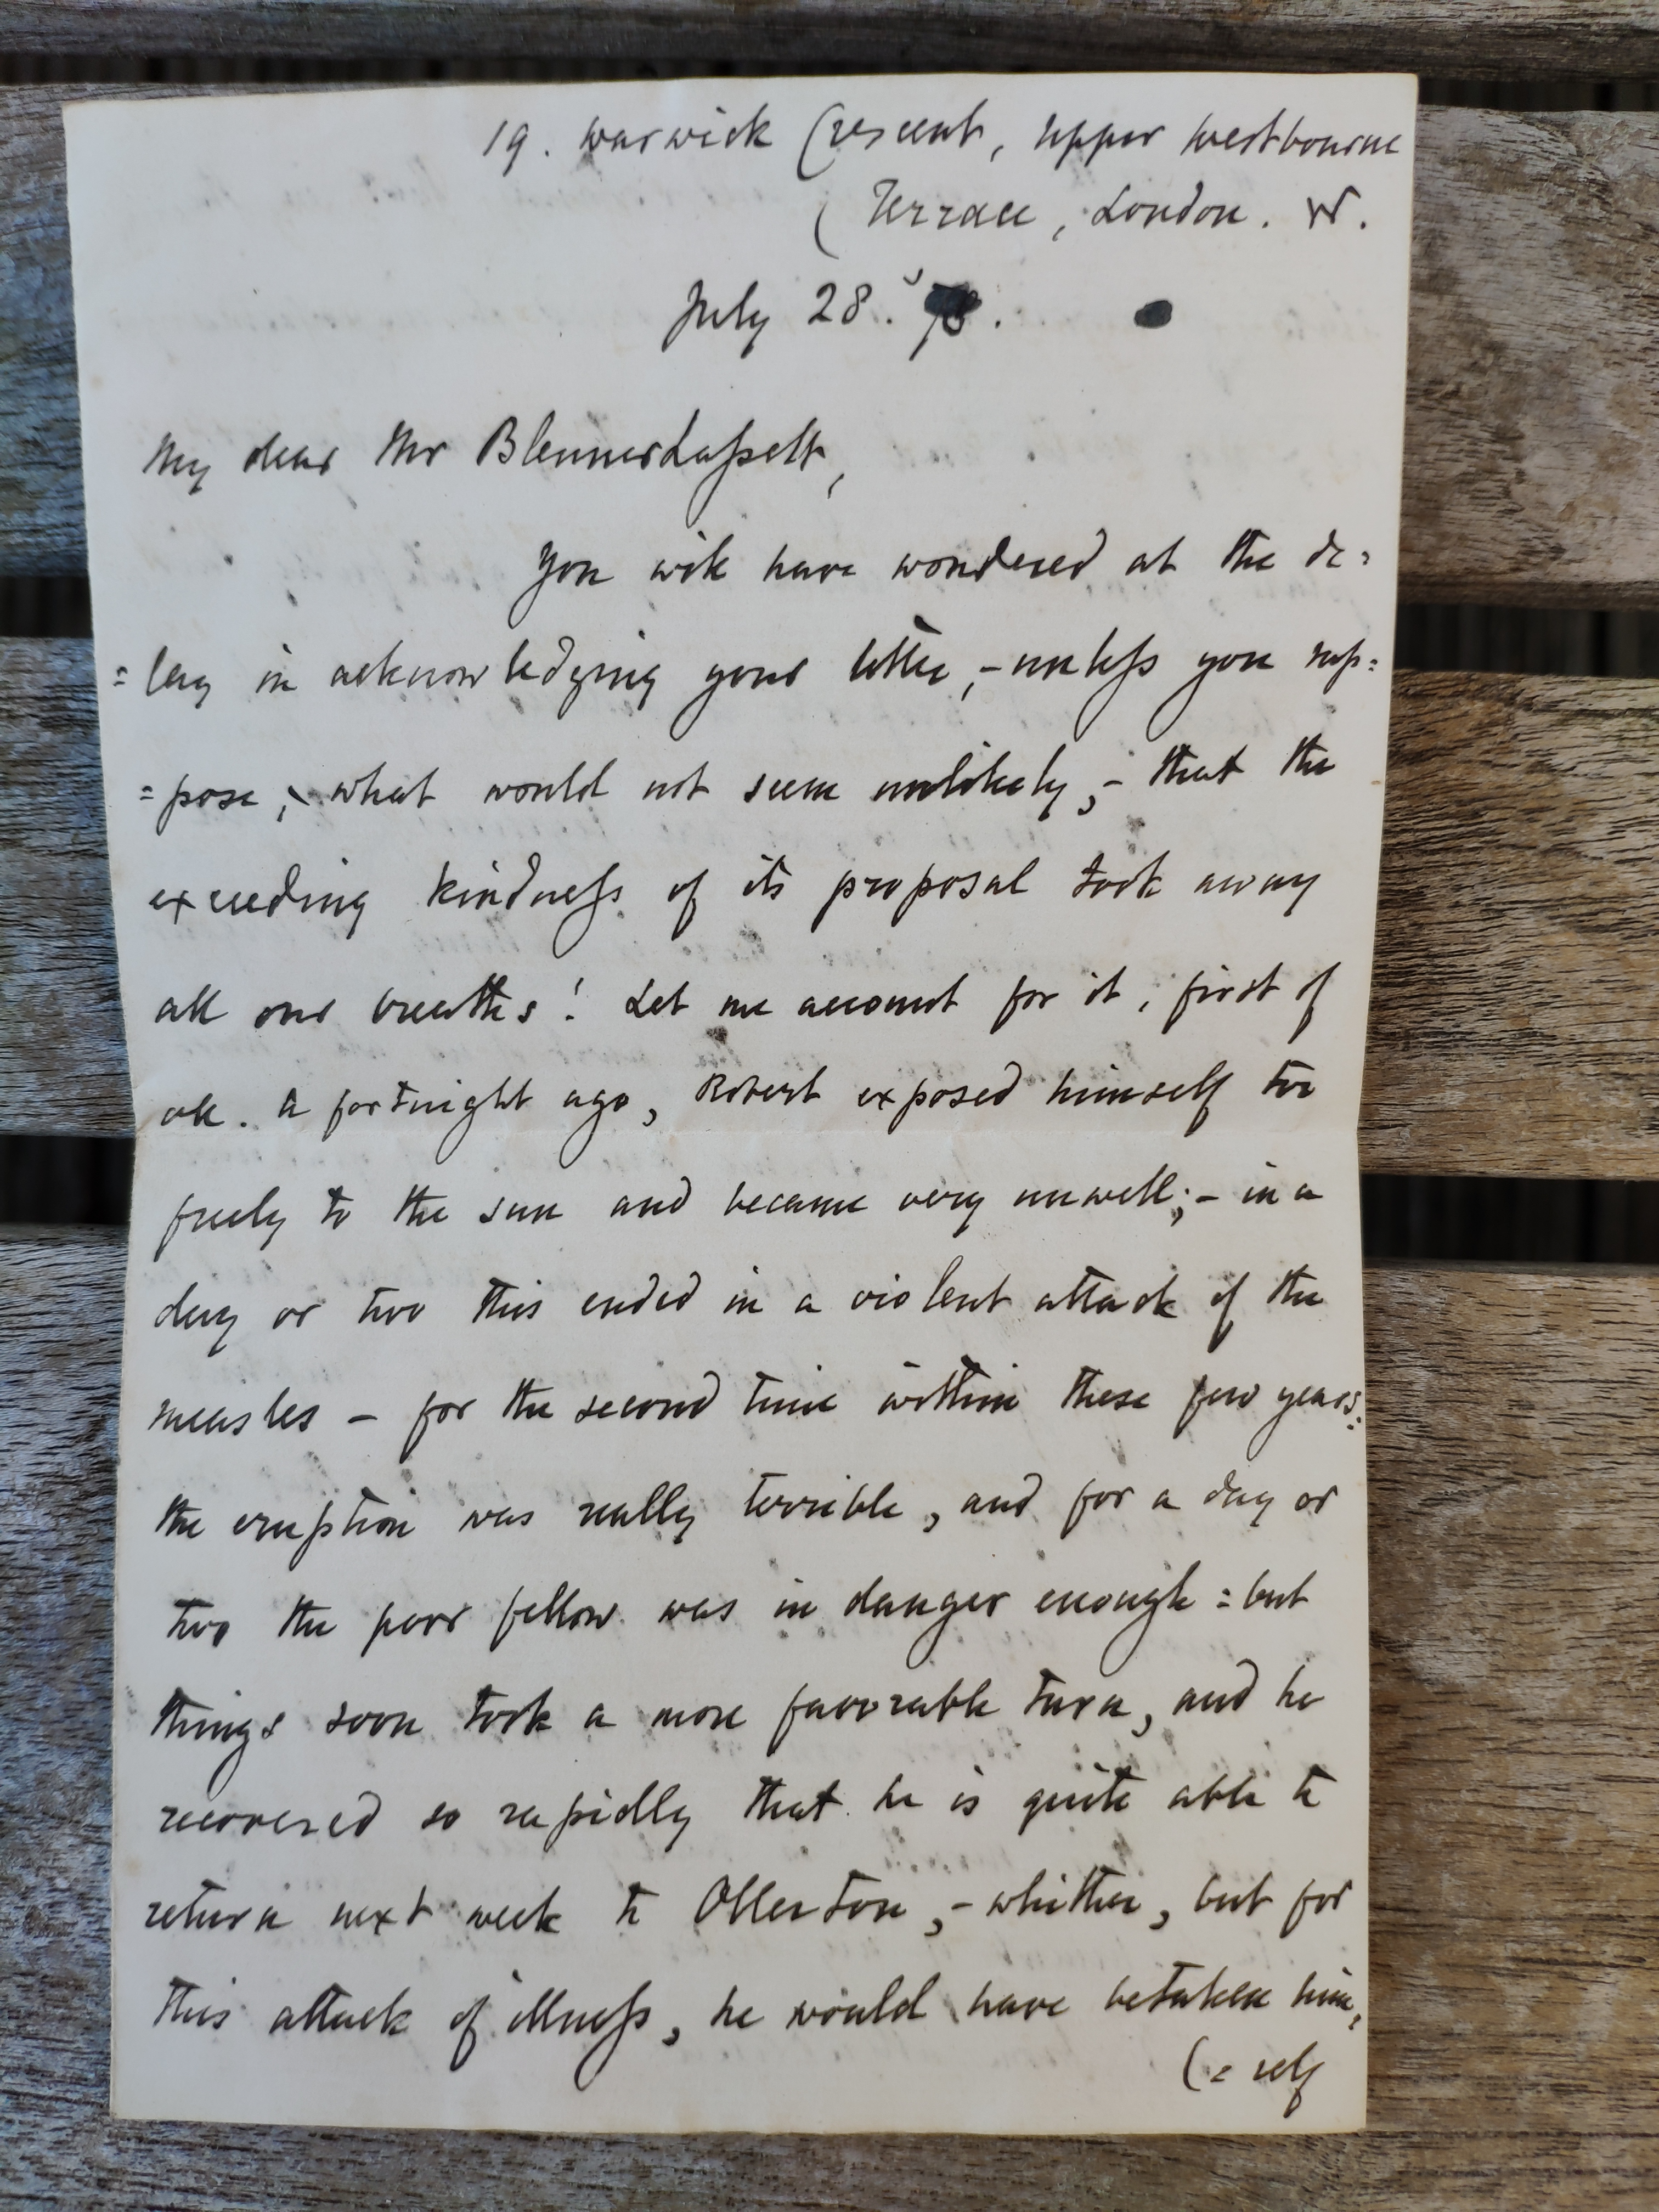 19. Warwick Crescent, Upper Westbourne
( Terrace, London. W.
July 28. '78.
My dear Mr Blennerhassett,
You will have wondered at the de=
=lay in acknowledging your letter, - unless you sup=
=pose, - what would not seem unlikely, - that the
exceeding kindness of its proposal took away
all our breaths! Let me account for it, first of
all. A fortnight ago, Robert exposed himself too
freely to the sun and became very unwell; - in a
day or two this ended in a violent attack of the
measles - for the second time within these few years:
the eruption was really terrible, and for a day or
two the poor fellow was in danger enough = but
things soon took a more favorable turn, and he
recovered so rapidly that he is quite able to
return next week to Ollerton, - whither, but for
this attack of illness, he would have betaken him=
(= self